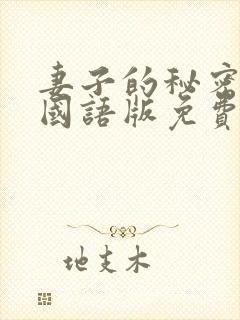 妻子的秘密
國語版免費
地支木